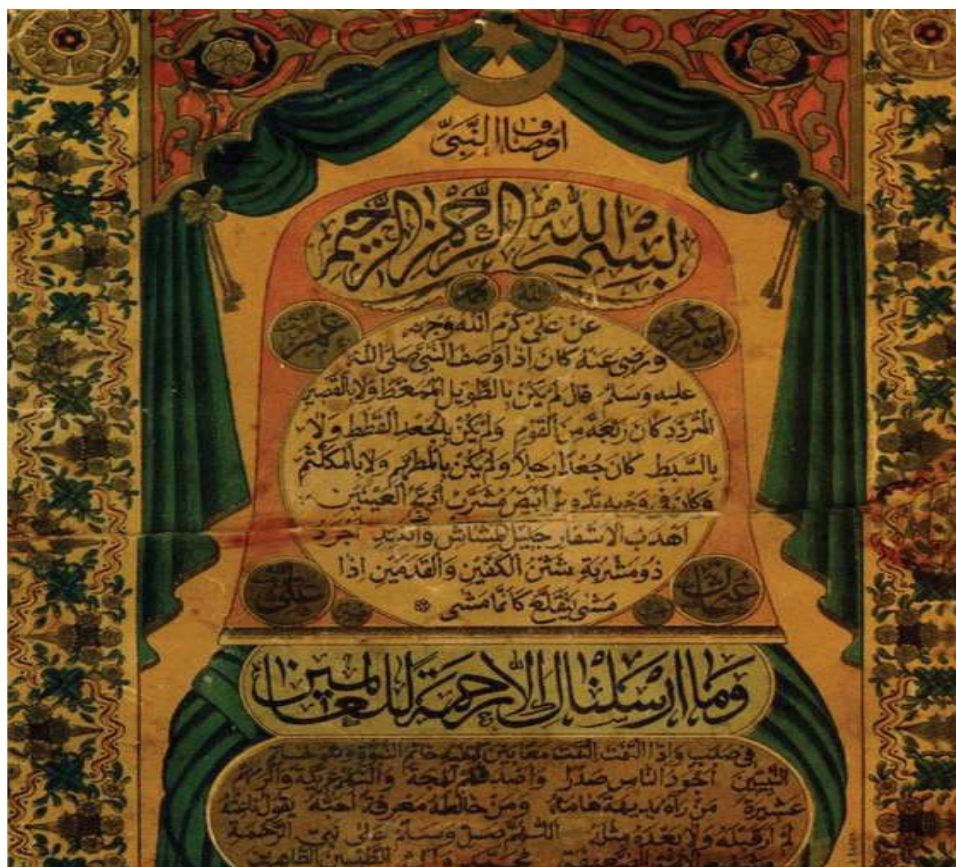 اوصاف النبى
بسم الله الرحمن الرحيم
الله محمد
ابوبكر
عمر
عن على كرم الله وجهه
ورضى عنه كان اذا وصف النبى صلى الله
عليه وسلم قال لم يكن بالطويل الممغط ولا بالقصير
المتردد كان ربعة من القوم ولم يكن بالجعد القطط ولا
بالسبط كان جعدا رجلا ولم يكن بالمطهم ولا بالمكلثم
وكان فى وجهه تدوير ابيض مشرب ادعج العينين
اهدب الاشفار جليل المشاش والكتد اجرد
ذو مشربة شثن الكفين والقدمين اذا
مشى يتقلع كانما مشى
عثمان
على
وما ارسلناك الا رحمة للعالمين
فى صبب واذا التفت التفت معا بين كتفيه خاتم النبوة وهو خاتم
النبيين اجود الناس صدرا واصدقهم لهجة والينهم عريكة واكرمهم
عشيرة من رآه بديهة هابه ومن خالطه معرفة احبه يقول ناعته
لم ار قبله ولا بعده مثله اللهم صل وسلم على نبى الرحمة
الطيبين الطاهرين